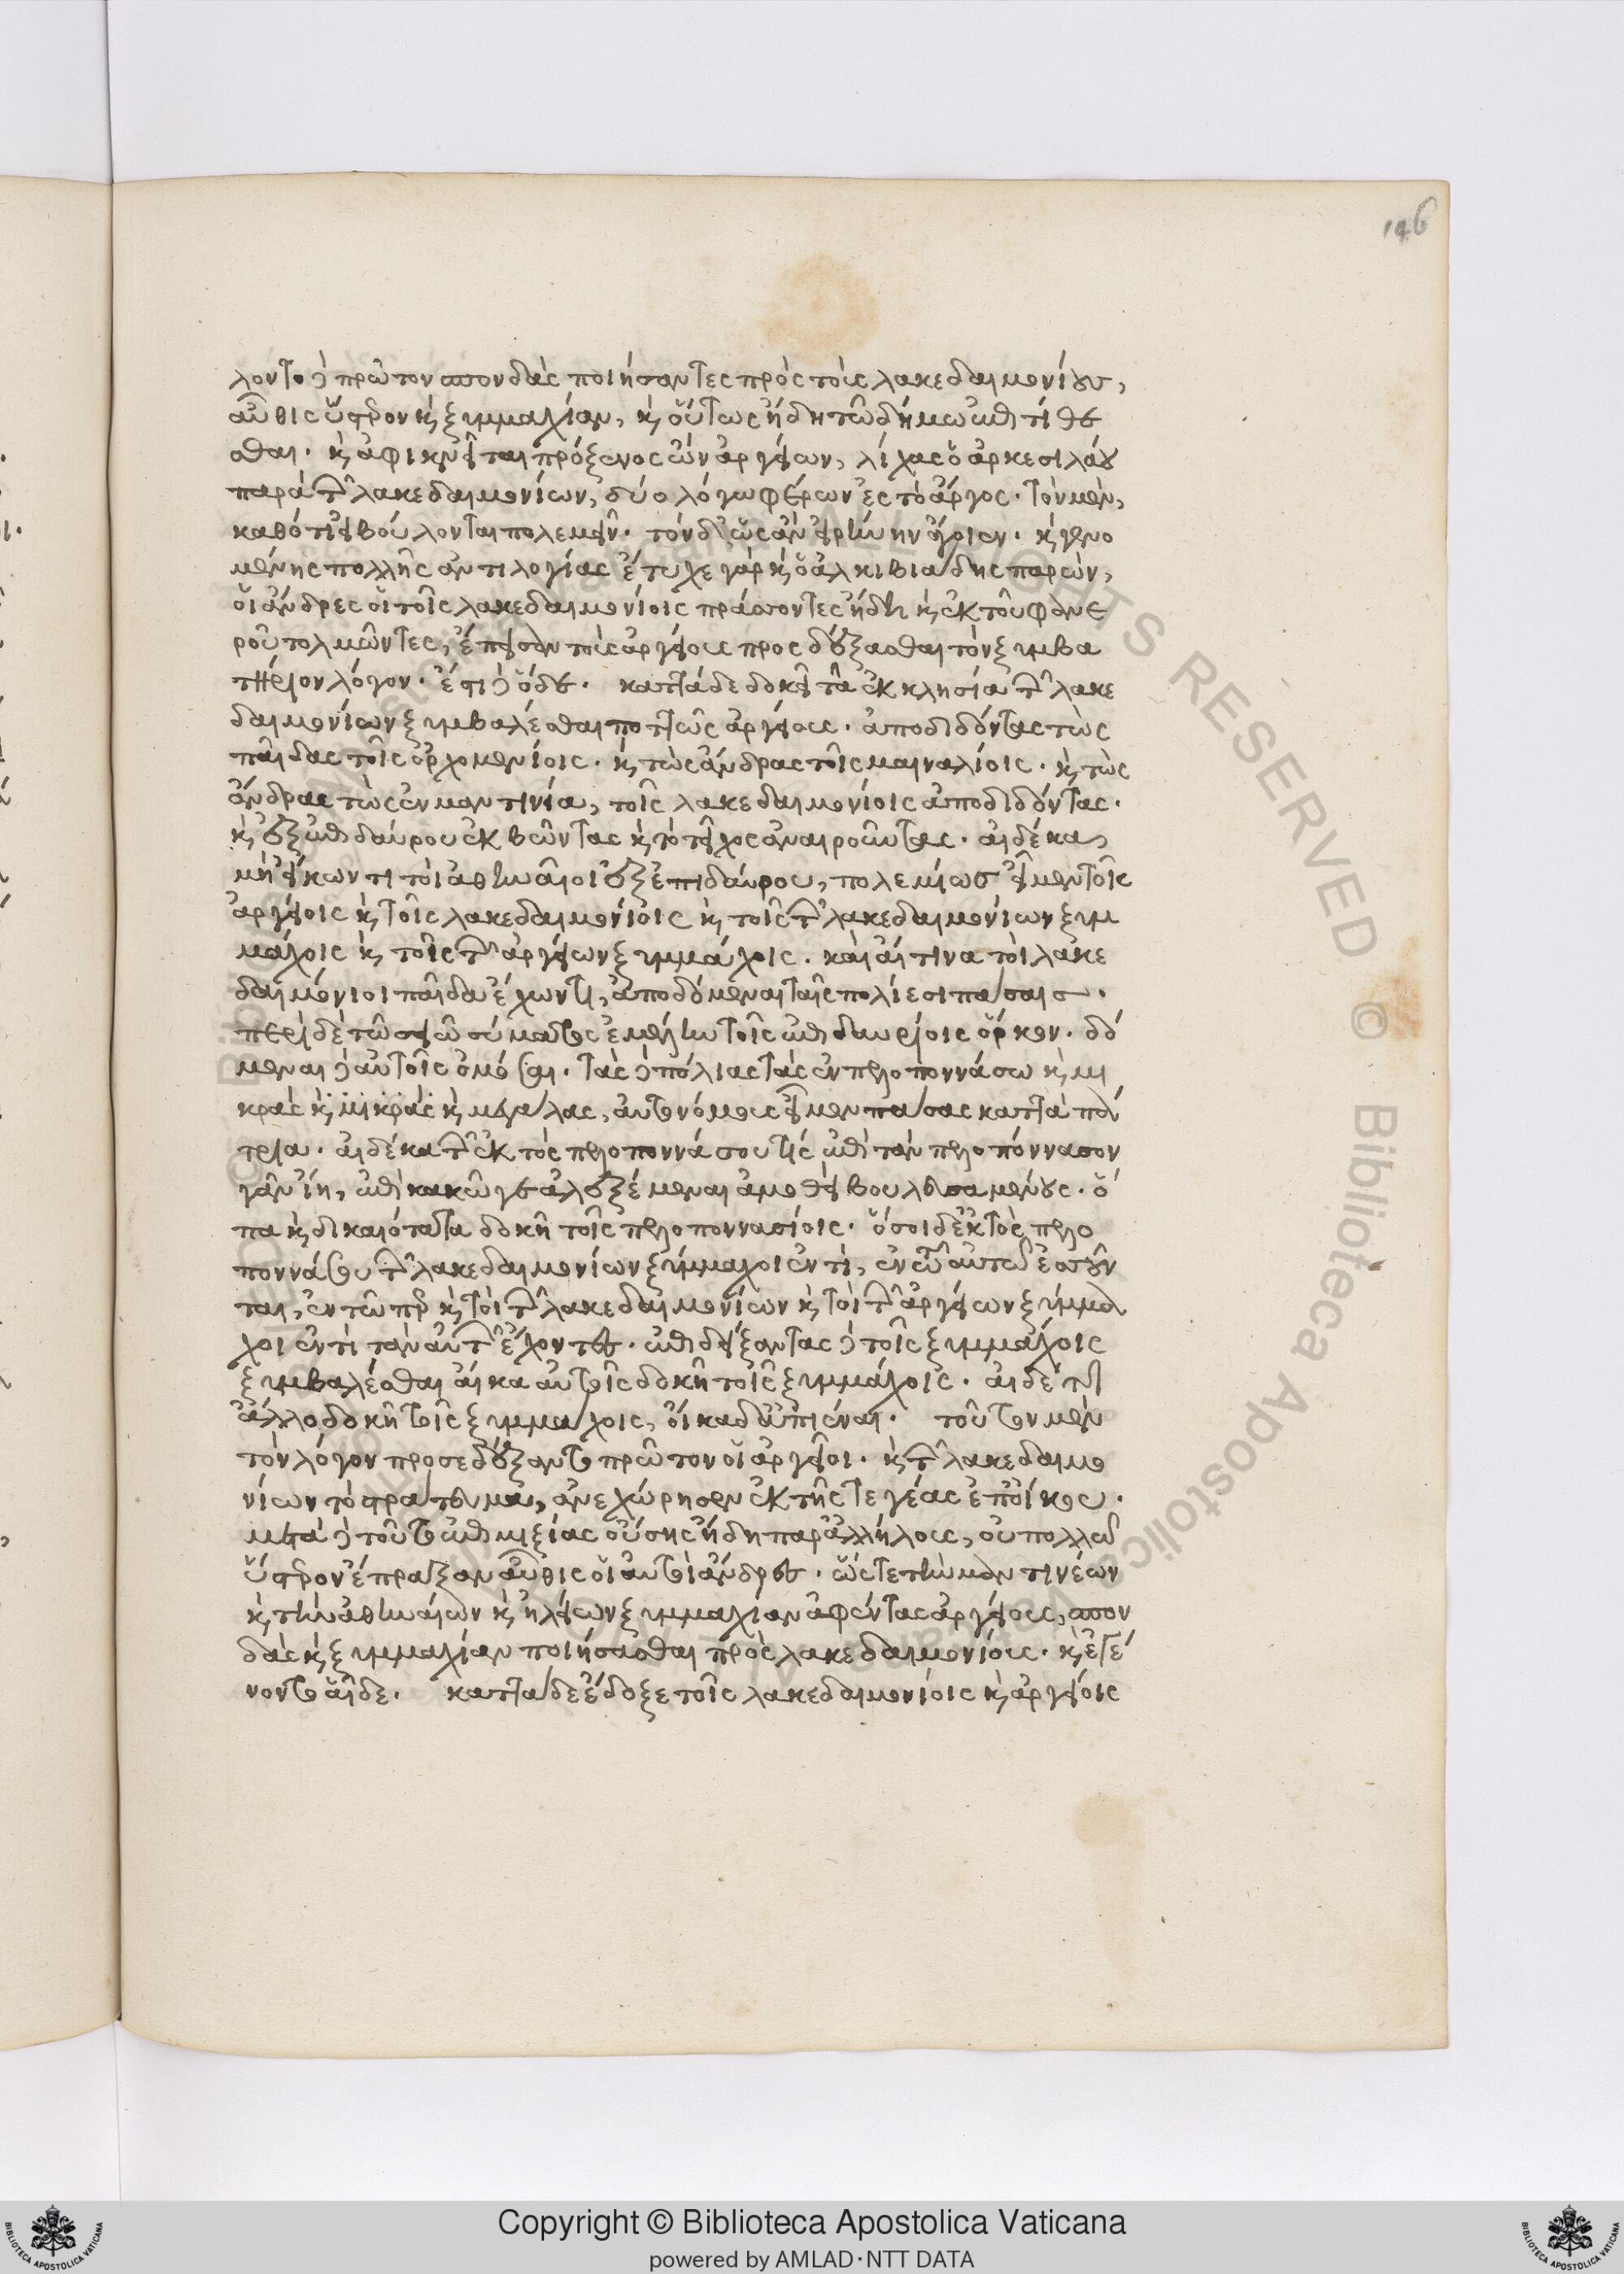 146
λοντο δὲ πρῶτον σπονδὰς ποιήσαντες πρὸς τοὺς λακεδαιμονίους,
αὖθις ὕστερον καὶ ξυμμαχίαν, καὶ οὕτως ἤδη τῶ δήμω ἐπιτίθε
σθαι. καὶ ἀφικνεῖται πρόξενος ὢν ἀργείων, λίχας ὁ ἀρκεσιλάου
παρὰ τῶν λακεδαιμονίων, δύο λόγω φέρων ἐς τὸ ἄργος. τὸν μὲν,
καθότι εἰ βούλονται πολεμεῖν. τὸν δ' ὡς ἂν εἰρήνην ἄγοιεν. καὶ γενο
μένης πολλῆς ἀντιλογίας ἔτυχε γὰρ καὶ ὁ ἀλκιβιάδης παρών,
οἱ ἄνδρες οἱ τοῖς λακεδαιμονίοις πράσσοντες ἤδη καὶ ἐκ τοῦ φανε
ροῦ τολμῶντες, ἔπεισαν τοὺς ἀργείους προσδέξασθαι τὸν ξυμβα
τήριον λόγον. ἔστι δὲ ὅδε. καττάδε δοκεῖ τᾶ ἐκκλησία τῶν λακε
δαιμονίων ξυμβαλέσθαι ποττὼς ἀργείους. ἀποδιδόντας τὼς
παῖδας τοῖς ὀρχομενίοις. καὶ τὼς ἄνδρας τοῖς μαιναλίοις. καὶ τὼς
ἄνδρας τὼς ἐν μαντινία, τοῖς λακεδαιμονίοις ἀποδιδόντας.
καὶ ἐξ ἐπιδαύρου ἐκβῶντας καὶ τὸ τεῖχος ἀναιροῦντας. αἰ δέ κα,
μὴ εἴκωντι τοὶ ἀθηναῖοι ἐξ ἐπιδαύρου, πολεμίως εἶμεν τοῖς
ἀργείοις καὶ τοῖς λακεδαιμονίοις καὶ τοῖς τῶν λακεδαιμονίων ξυμ
μάχοις καὶ τοῖς τῶν ἀργείων ξυμμάχοις. καὶ αἴ τινα τοὶ λακε
δαιμόνιοι παῖδα ἔχωντι, ἀποδόμεναι ταῖς πολίεσι πάσαις.
περὶ δὲ τῶ σιῶ σύματος ἐμελην τοῖς ἐπιδαυρίοις ὅρκον. δό
μεναι δὲ αὐτοῖς ὀμόσαι. τὰς δὲ πόλιας τὰς ἐν πελοποννάσω καὶ μι
κρὰς καὶ μικρὰς καὶ μεγάλας, αὐτονόμους εἶμεν πάσας καττὰ πά
τρια. αἰ δέ κα τῶν ἐκτὸς πελοποννάσου τὶς ἐπὶ τὰν πελοπόννασον
γᾶν ἴη, ἐπὶ κακῶ γε ἀλεξέμεναι ἀμοθεὶ βουλευσαμένους. ὅ
πα καὶ δικαιότατα δοκῆ τοῖς πελοποννασίοις. ὅσοι δ' ἐκτὸς πελο
ποννάσου τῶν λακεδαιμονίων ξύμμαχοι ἐντὶ, ἐν τῶ αὐτῶ ἐσσοῦν
ται, ἐν τῶ περ καὶ τοὶ τῶν λακεδαιμονίων καὶ τοὶ τῶν ἀργείων ξύμμα
χοι ἐντὶ τὰν αὐτῶν ἔχοντες. ἐπιδείξαντας δὲ τοῖς ξυμμάχοις
ξυμβαλέσθαι αἴ κα αὐτοῖς δοκῆ τοῖς ξυμμάχοις. αἰ δέ τι
ἄλλο δοκῆ τοῖς ξυμμάχοις, οἴκαδ' ἀπιέναι. τοῦτον μὲν
τὸν λόγον προσεδέξαντο πρῶτον οἱ ἀργεῖοι. καὶ τῶν λακεδαιμο
νίων τὸ στράτευμα, ἀνεχώρησεν ἐκ τῆς τεγέας ἐπ' οἴκου.
μετὰ δὲ τοῦτο ἐπιμιξίας οὔσης ἤδη παρ' ἀλλήλους, οὐ πολλῶ
ὕστερον ἔπραξαν αὖθις οἱ αὐτοὶ ἄνδρες. ὥστε τὴν μαντινέων
καὶ τὴν ἀθηναίων καὶ ἠλείων ξυμμαχίαν ἀφέντας ἀργείους, σπον
δὰς καὶ ξυμμαχίαν ποιήσασθαι πρὸς λακεδαιμονίους. καὶ ἐγέ
νοντο αἵδε. καττάδε ἔδοξε τοῖς λακεδαιμονίοις καὶ ἀργείοις
Copyright © Biblioteca Apostolica Vaticana
powered by AMLAD·NTT DATA